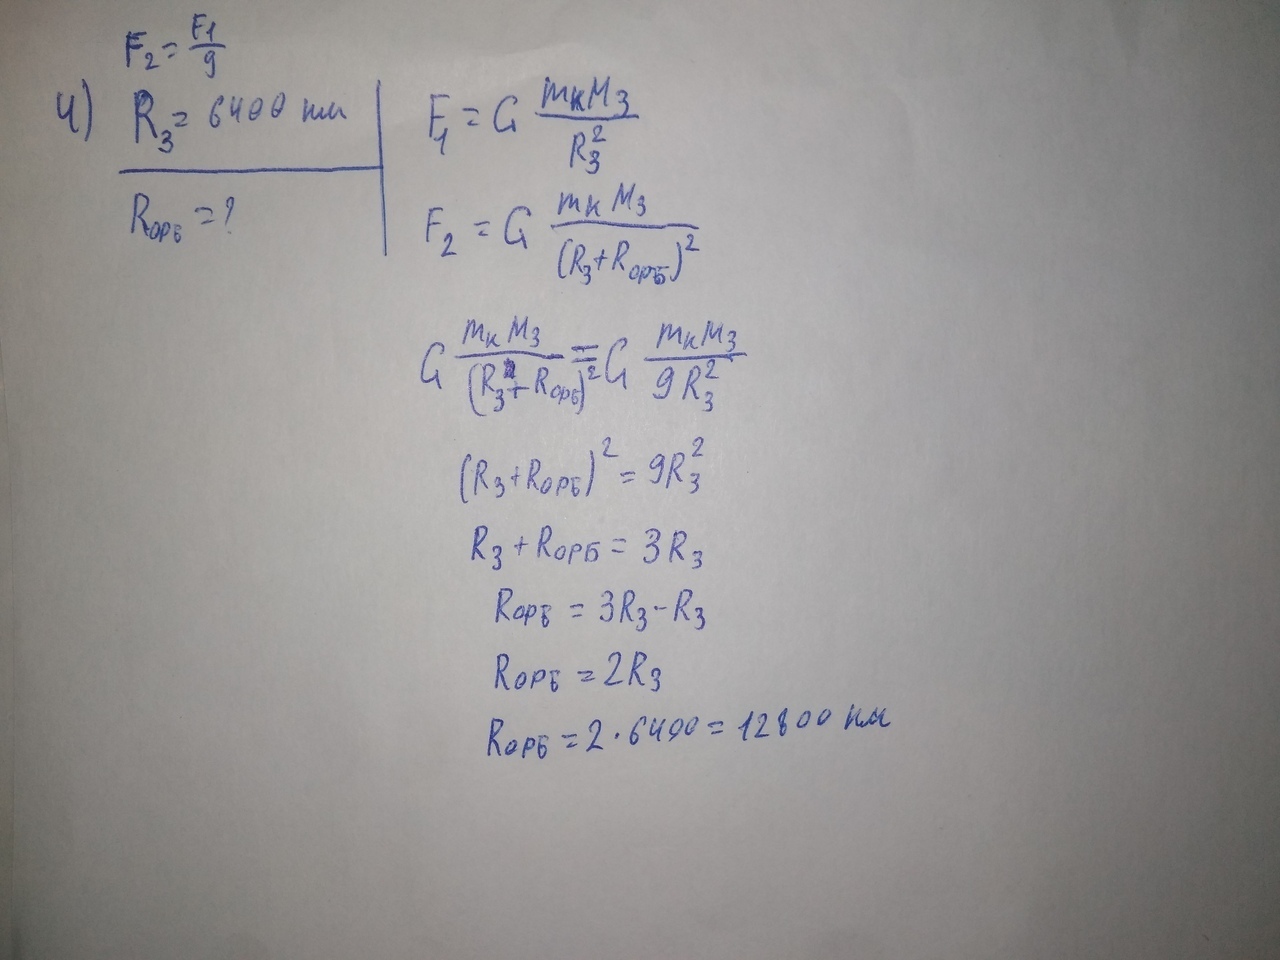 F₂ = F₁/9
4) R₃ = 6400 км
Rорб = ?
F₁ = G mкM₃/R₃²
F₂ = G mкM₃/(R₃+Rорб)²
G mкM₃/(R₃+Rорб)² = G mкM₃/9R₃²
(R₃+Rорб)² = 9R₃²
R₃+Rорб = 3R₃
Rорб = 3R₃-R₃
Rорб = 2R₃
Rорб = 2·6400 = 12800 км